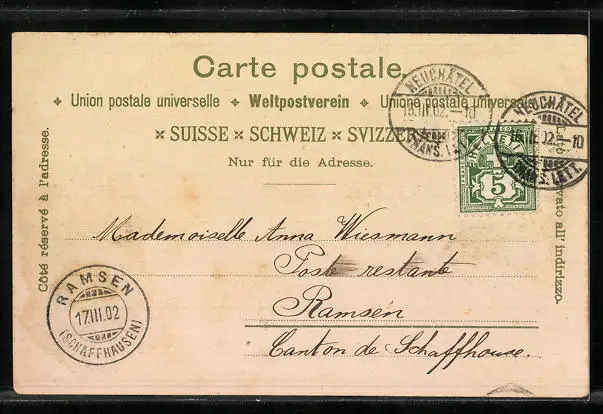 Carte postale.
Union postale universelle ✦ Weltpostverein ✦ Unione postale universale
SUISSE × SCHWEIZ × SVIZZERA
Nur für die Adresse.
Côté réservé à l'adresse.
NEUCHÂTEL
15.III.02.–10
NEUCHÂTEL
15.III.02.–10
TRANS. LETT.
5
Mademoiselle Anna Wiesmann
Poste restante
Ramsen
Canton de Schaffhouse.
RAMSEN
17.III.02
(SCHAFFHAUSEN)
all' indirizzo.